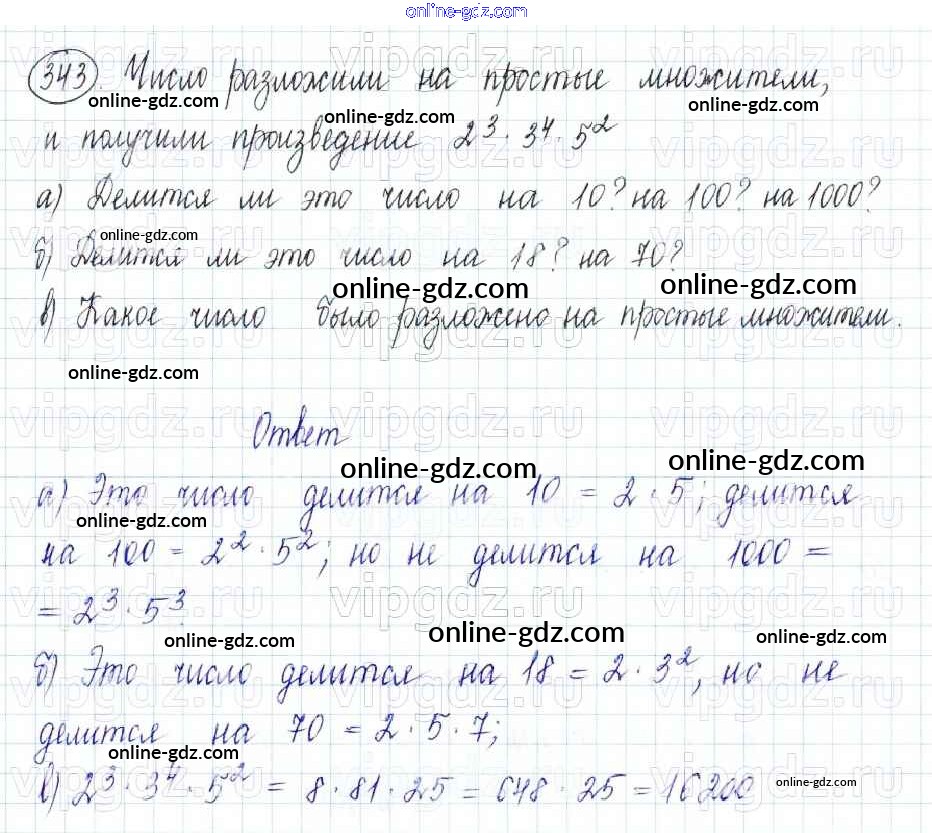 online-gdz.com
343. Число разложили на простые множители,
online-gdz.com online-gdz.com
и получили произведение 2³·3⁴·5²
а) Делится ли это число на 10? на 100? на 1000?
online-gdz.com
б) Делится ли это число на 18? на 70?
online-gdz.com online-gdz.com
в) Какое число было разложено на простые множители.
online-gdz.com
Ответ
online-gdz.com online-gdz.com
а) Это число делится на 10 = 2·5; делится
online-gdz.com
на 100 = 2²·5²; но не делится на 1000 =
= 2³·5³
online-gdz.com online-gdz.com online-gdz.com
б) Это число делится на 18 = 2·3², но не
делится на 70 = 2·5·7;
online-gdz.com online-gdz.com
в) 2³·3⁴·5² = 8·81·25 = 648·25 = 16200
online-gdz.com
vipgdz.ru